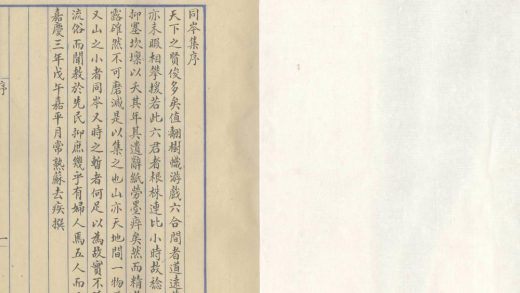 同岑集序
天下之賢俊多矣值翻樹幟游戲六合間者道遠
亦未暇相攀援若此六君者根株連比小時故稔
抑塞坎壈以夭其年其遺辭紙勞墨瘁矣然而精
露確然不可磨滅是以集之也山亦天地間一物
又山之小者同岑又時之暫者何足以為故實不
流俗而聞教於先民抑庶幾乎有婦人焉五人而
嘉慶三年戊午嘉平月常熟蘇去疾撰
序
一